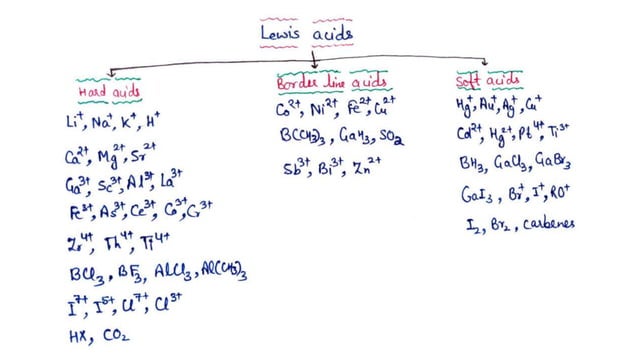 Lewis acids
Hard acids
Li⁺, Na⁺, K⁺, H⁺
Ca²⁺, Mg²⁺, Sr²⁺
Ga³⁺, Sc³⁺, Al³⁺, La³⁺
Fe³⁺, As³⁺, Ce³⁺, Co³⁺, Cr³⁺
Zr⁴⁺, Th⁴⁺, Ti⁴⁺
BCl₃, BF₃, AlCl₃, Al(CH₃)₃
I⁷⁺, I⁵⁺, Cl⁷⁺, Cl³⁺
HX, CO₂
Border line acids
Co²⁺, Ni²⁺, Fe²⁺, Cu²⁺
B(CH₃)₃, GaH₃, SO₂
Sb³⁺, Bi³⁺, Zn²⁺
Soft acids
Hg⁺, Au⁺, Ag⁺, Cu⁺
Cd²⁺, Hg²⁺, Pt⁴⁺, Ti³⁺
BH₃, GaCl₃, GaBr₃
GaI₃, Br⁺, I⁺, RO⁺
I₂, Br₂, carbenes